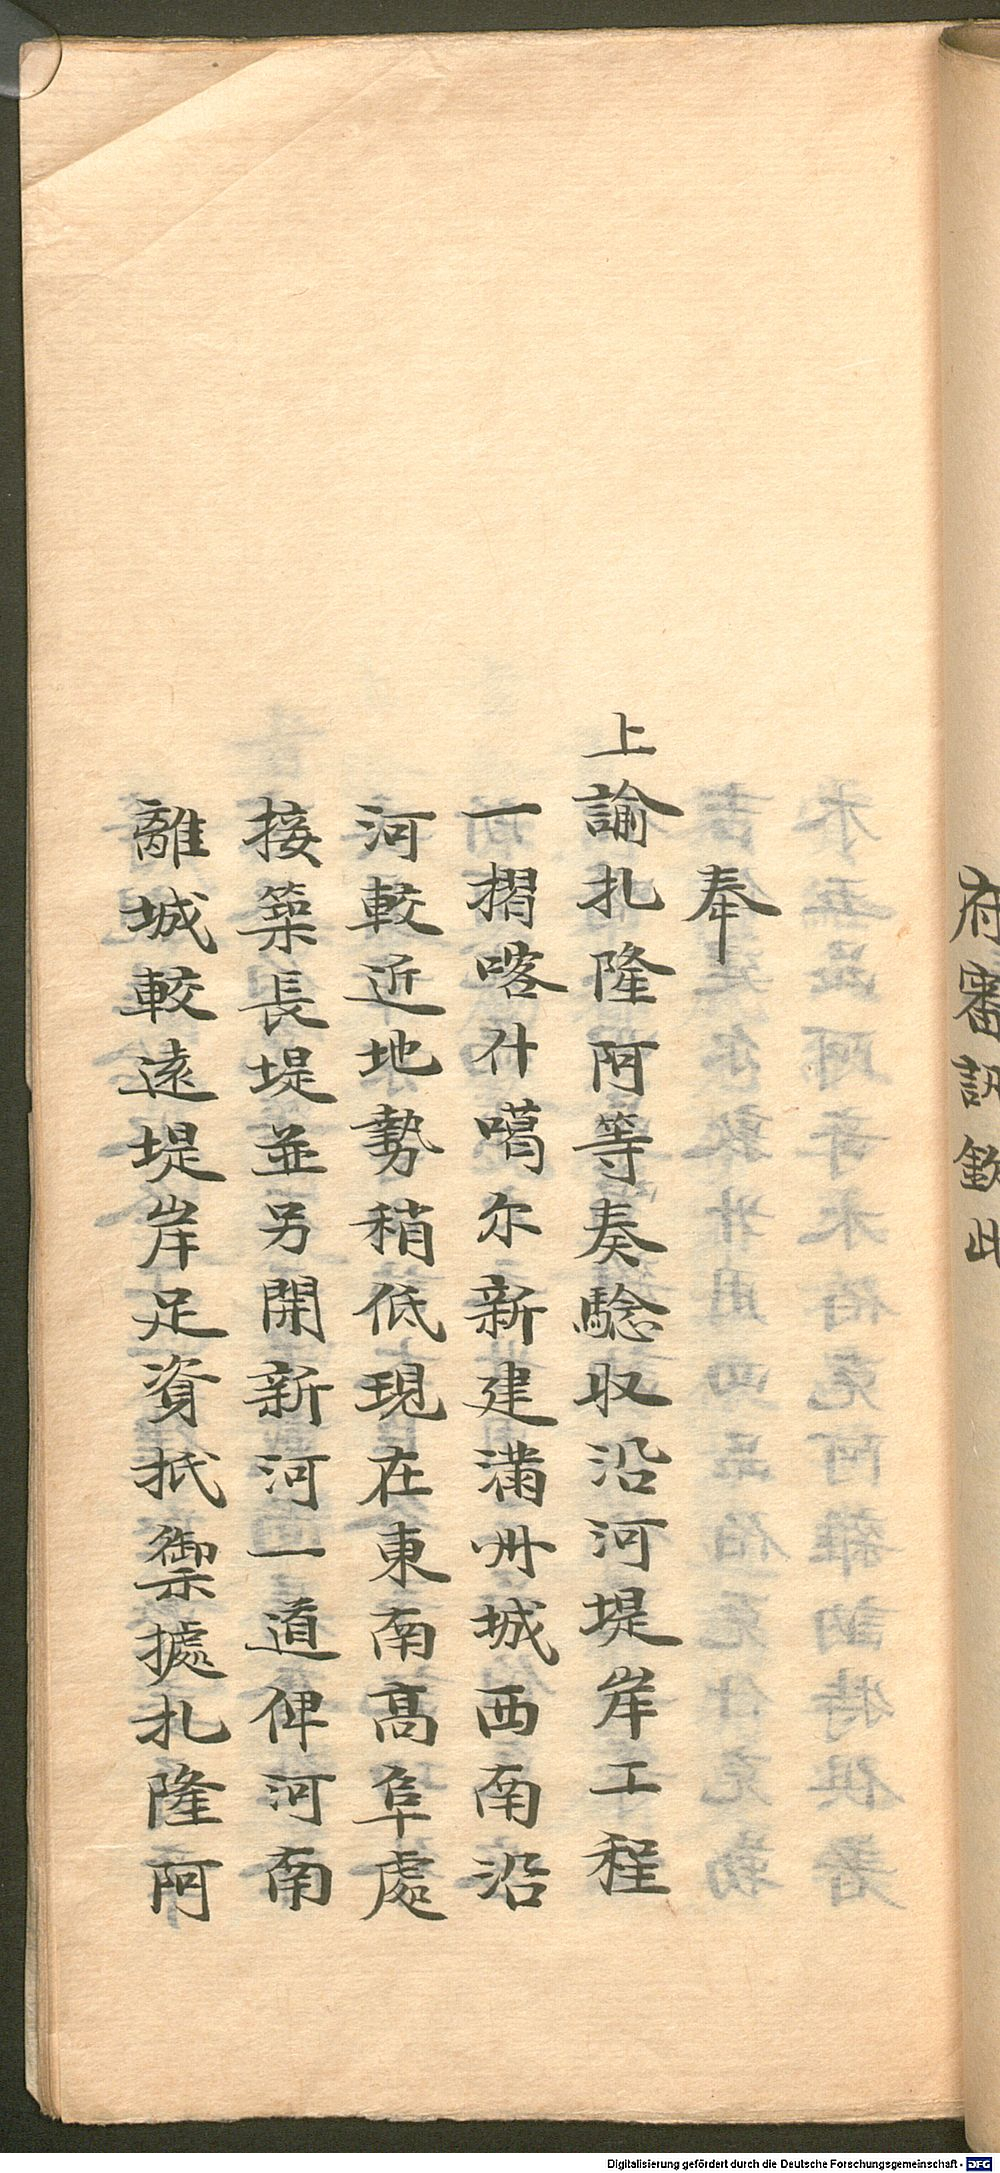 府審訊欽此
奉
上諭扎隆阿等奏驗收沿河堤岸工程
一摺喀什噶尔新建滿州城西南沿
河較近地勢稍低現在東南高阜處
接築長堤並另開新河一道俾河南
離城較遠堤岸足資抵禦據扎隆阿
Digitalisierung gefördert durch die Deutsche Forschungsgemeinschaft - DFG